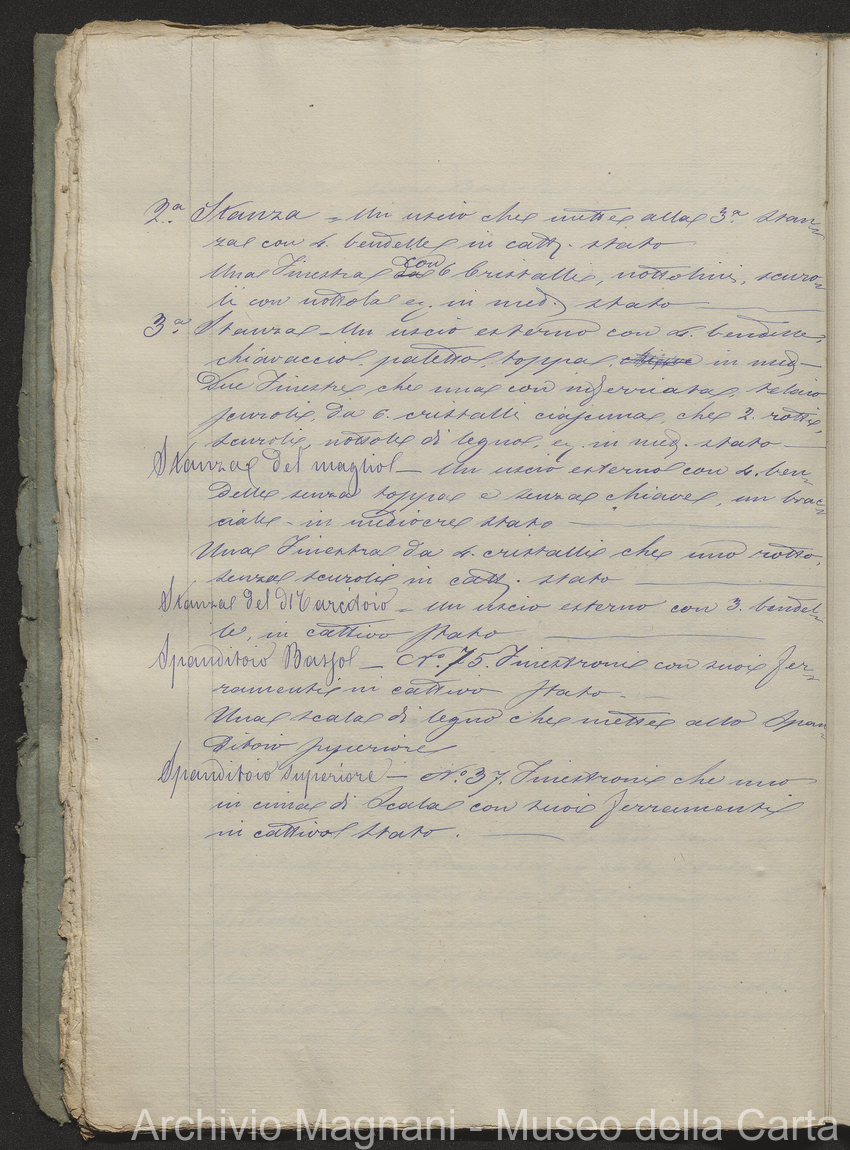 2.a Stanza = Un uscio che mette alla 3.a Stan=
za con 4. bendelle in catt.o stato
Una Finestra con 6 Cristalli, nottolini, scuro=
li con nottola ec. in med.o stato
3.a Stanza - Un uscio esterno con 4. bendelle,
chiavaccio, paletto, toppa, in med.o
Due Finestre, che una con inferriata, telaio
scuroli, da 6. cristalli ciascuna, che 2. rotti,
scuroli, nottole di legno, ec. in med.o stato
Stanza del maglio - Un uscio esterno con 4. ben=
delle senza toppa e senza chiave, un brac=
ciale - in mediocre stato
Una Finestra da 4. cristalli che uno rotto,
senza scuroli in catt.o stato
Stanza del Marcitoio = Un uscio esterno con 3. bendel=
le, in cattivo stato
Spanditoio Basso - N.o 75. Finestroni con suoi fer=
ramenti in cattivo stato.
Una scala di legno che mette allo Span=
ditoio superiore
Spanditoio Superiore - N.o 37. Finestroni che uno
in cima di Scala con suoi ferramenti
in cattivo stato.
Archivio Magnani - Museo della Carta